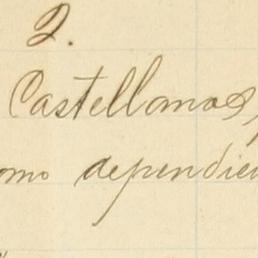 2.
Castellanos,
omo dependien